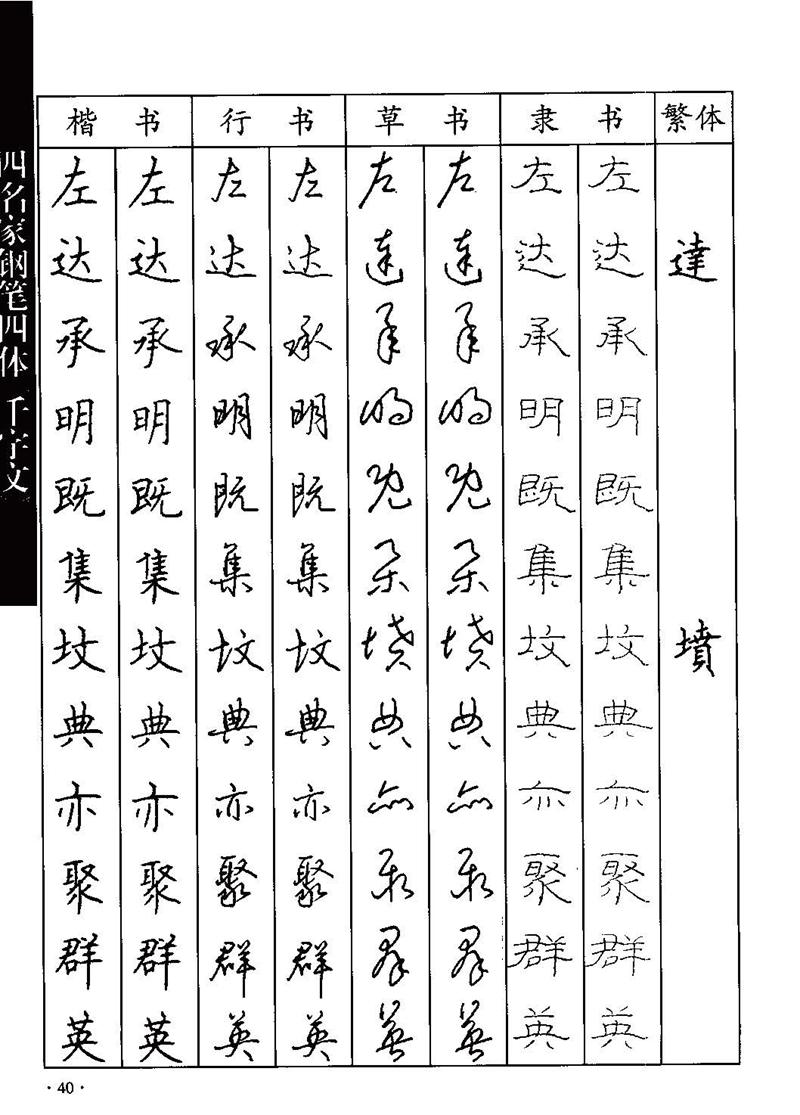 四名家钢笔四体 千字文
楷书 行书 草书 隶书 繁体
左 左 左 左 左 左 左 左
达 达 达 达 達 達 达 达 達
承 承 承 承 承 承 承 承
明 明 明 明 明 明 明 明
既 既 既 既 既 既 既 既
集 集 集 集 集 集 集 集
坟 坟 坟 坟 墳 墳 坟 坟 墳
典 典 典 典 典 典 典 典
亦 亦 亦 亦 亦 亦 亦 亦
聚 聚 聚 聚 聚 聚 聚 聚
群 群 群 群 群 群 群 群
英 英 英 英 英 英 英 英
·40·